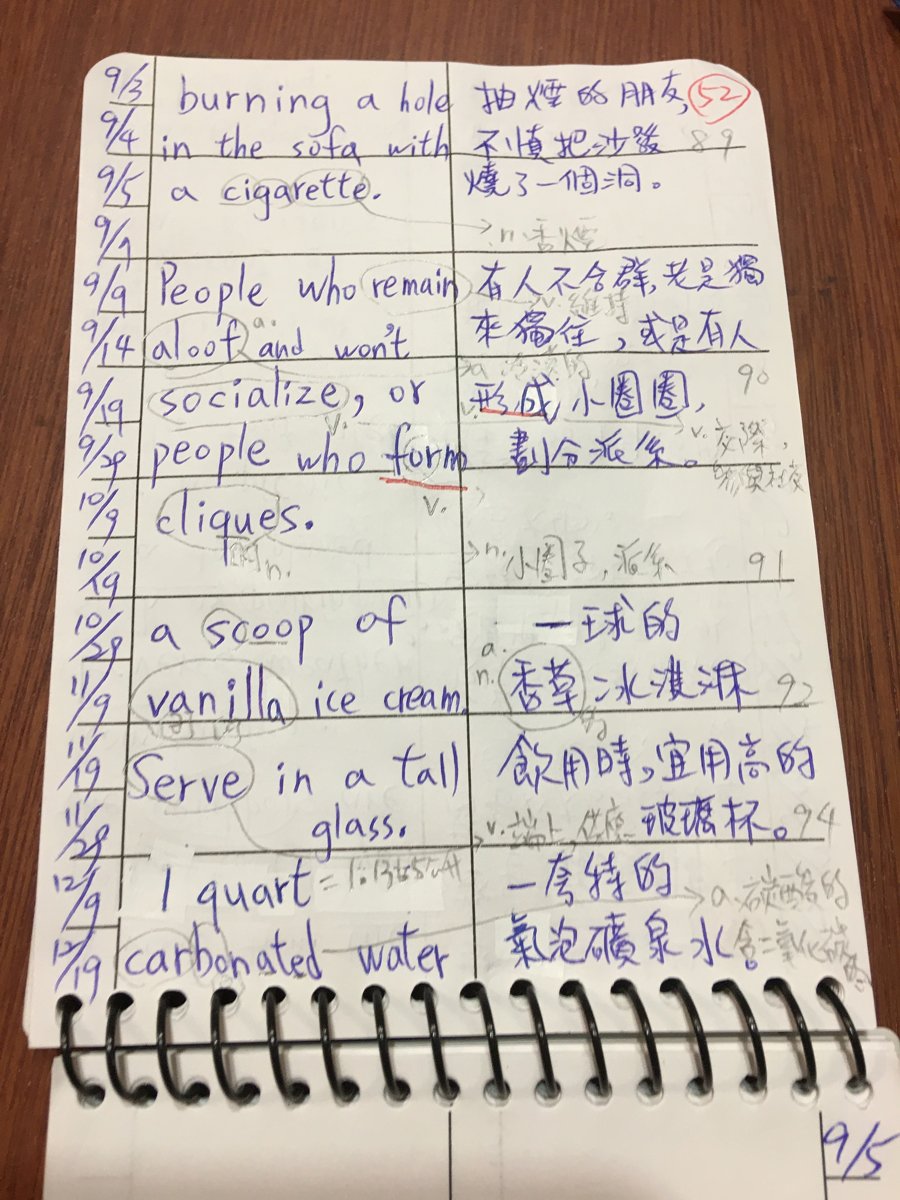 9/3 burning a hole 抽煙的朋友, 52
9/4 in the sofa with 不慎把沙發 89
9/5 a cigarette. 燒了一個洞。
9/9 n. 香煙
9/9 People who remain 有人不合群,老是獨
a. v. 維持
9/14 aloof and won't 來獨住,或是有人
a. 冷漠的
9/19 socialize, or 形成小圈圈, 90
v. v. v. 交際,
9/29 people who form 劃分派系。
10/9 cliques. v.
n. n. 小圈子,派系 91
10/19
10/29 a scoop of 一球的
a.
n.
11/9 vanilla ice cream. 香草冰淇淋 92
11/19 Serve in a tall 飲用時,宜用高的
11/29 glass. v. 端上,供應 玻璃杯。94
12/9 1 quart = 一夸特的 a. 碳酸的
12/19 carbonated water 氣泡礦泉水。含二氧化碳的
9/5